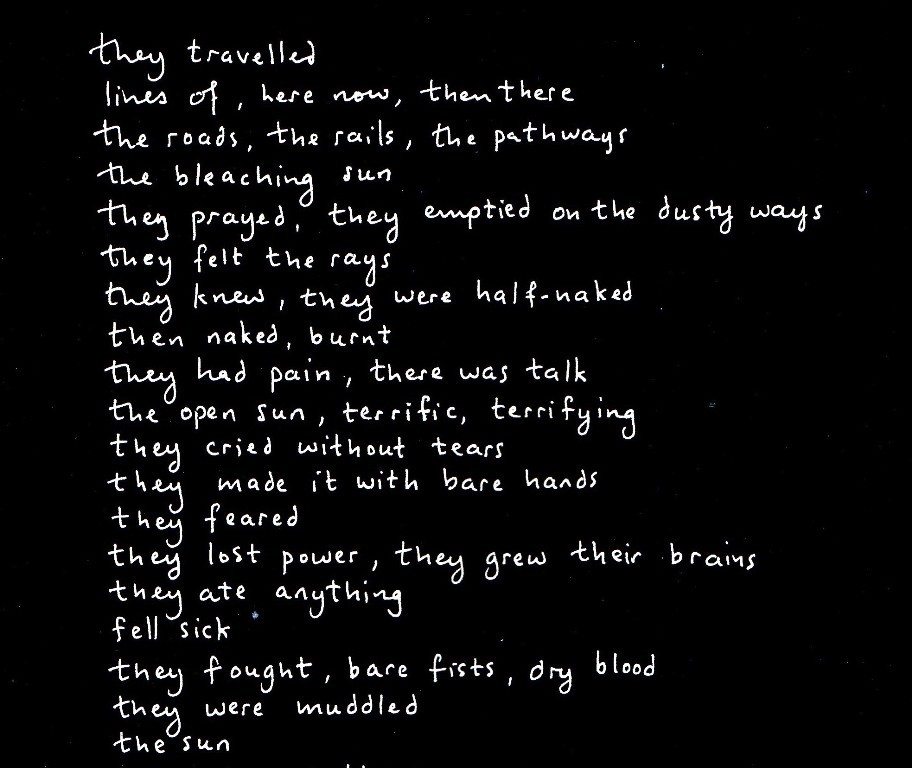 they travelled
lines of, here now, then there
the roads, the rails, the pathways
the bleaching sun
they prayed, they emptied on the dusty ways
they felt the rays
they knew, they were half-naked
then naked, burnt
they had pain, there was talk
the open sun, terrific, terrifying
they cried without tears
they made it with bare hands
they feared
they lost power, they grew their brains
they ate anything
fell sick
they fought, bare fists, dry blood
they were muddled
the sun